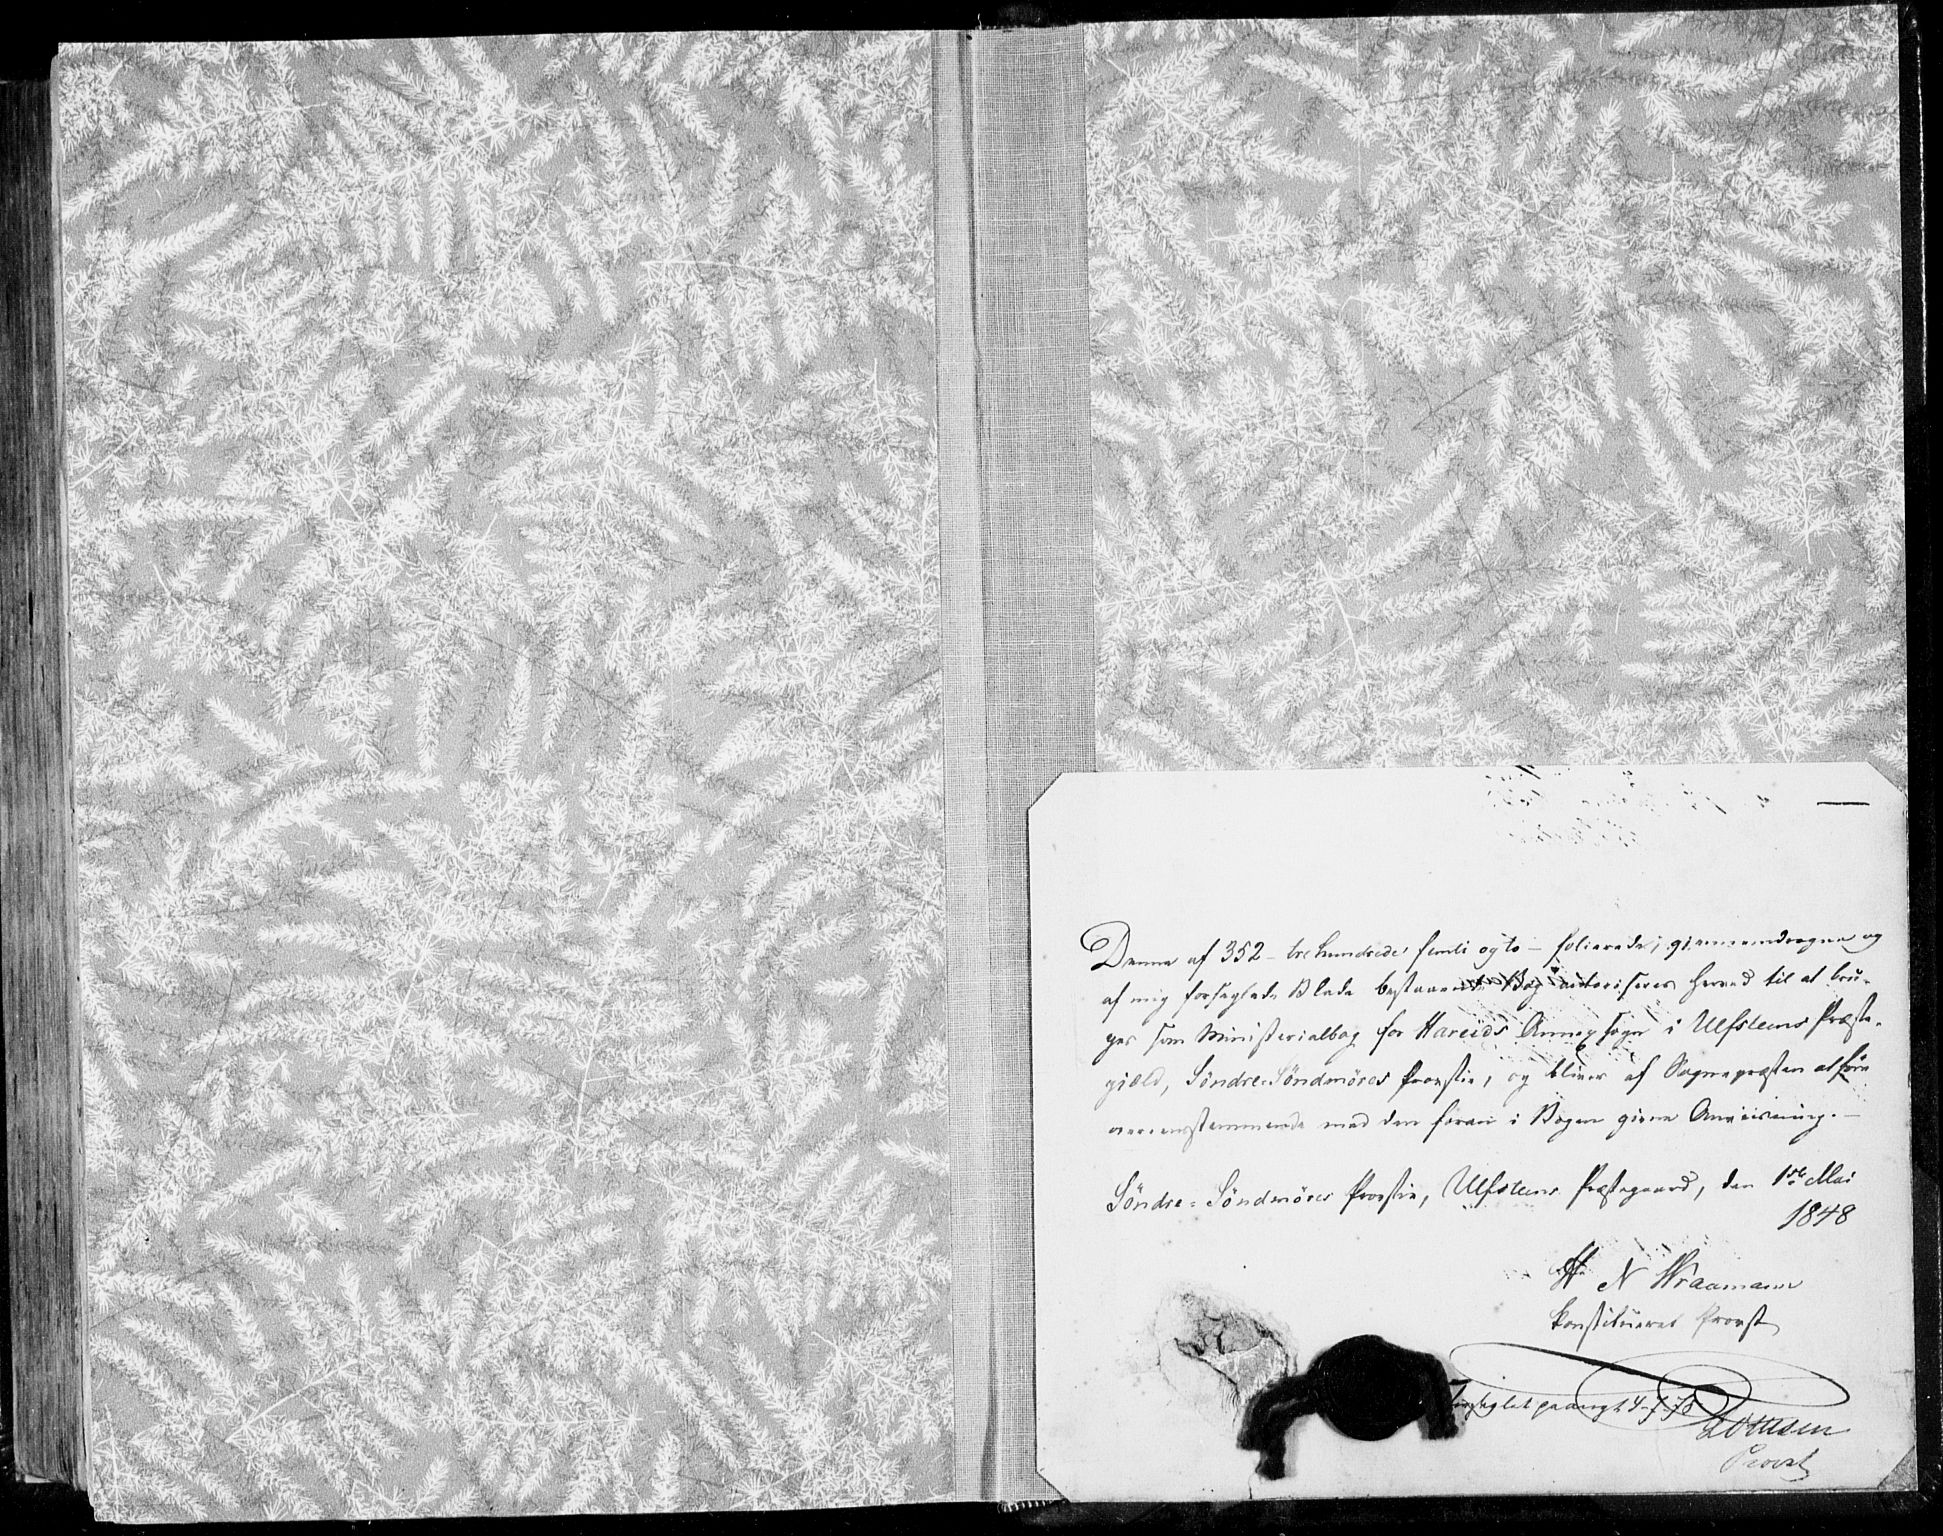 Denne af 352 – tre hundrede femti og to – folierede, giennemdragne og
af mig forseglede Blade bestaaende Bog autoriseres herved til at bru-
ges som Ministerialbog for Hareids Annexsogn i Ulfsteens Præste-
gield, Söndre-Söndmöres Provstie, og bliver af Sognepræsten at före
overensstemmende med den foran i Bogen givne Anviisning. –
Söndre-Söndmöres Provstie, Ulfsteens Præstegaard, den 1ste Mai
1848
H N Wraamann
konstitueret Provst
forseglet paanyt 4-7-78
Provst